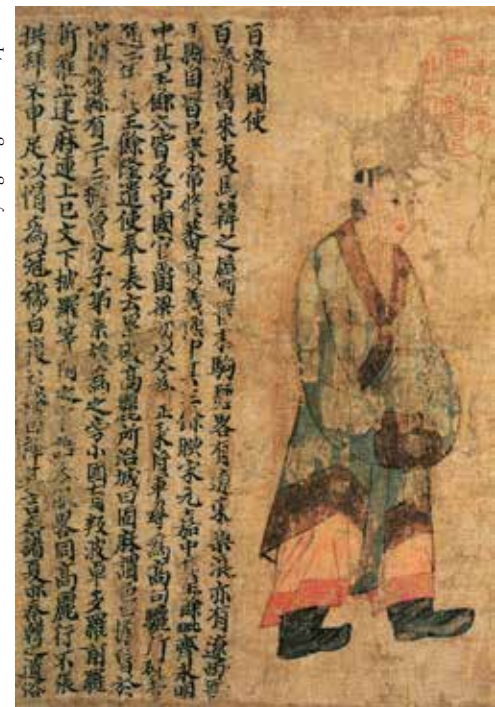 百濟國使
百濟舊來夷馬韓之屬晉末駒驪略有遼東樂浪亦有遼西晉
平縣自晉已來常修蕃貢義熙中其王餘腆宋元嘉中其王餘毗齊永明
中其王餘太皆受中國官爵梁初以太為征東將軍尋為高句驪所
二年王餘隆遣使奉表云累破高麗所治城曰固麻謂邑曰檐魯於
中國郡縣有二十二檐魯分子弟宗族為之旁小國有叛波卓多羅前羅
斯羅止迷麻連上巳文下枕羅等附之言語衣服略同高麗行不張
拱拜不申足以帽為冠襦曰複衫袴曰褌其言參諸夏亦秦韓之遺俗